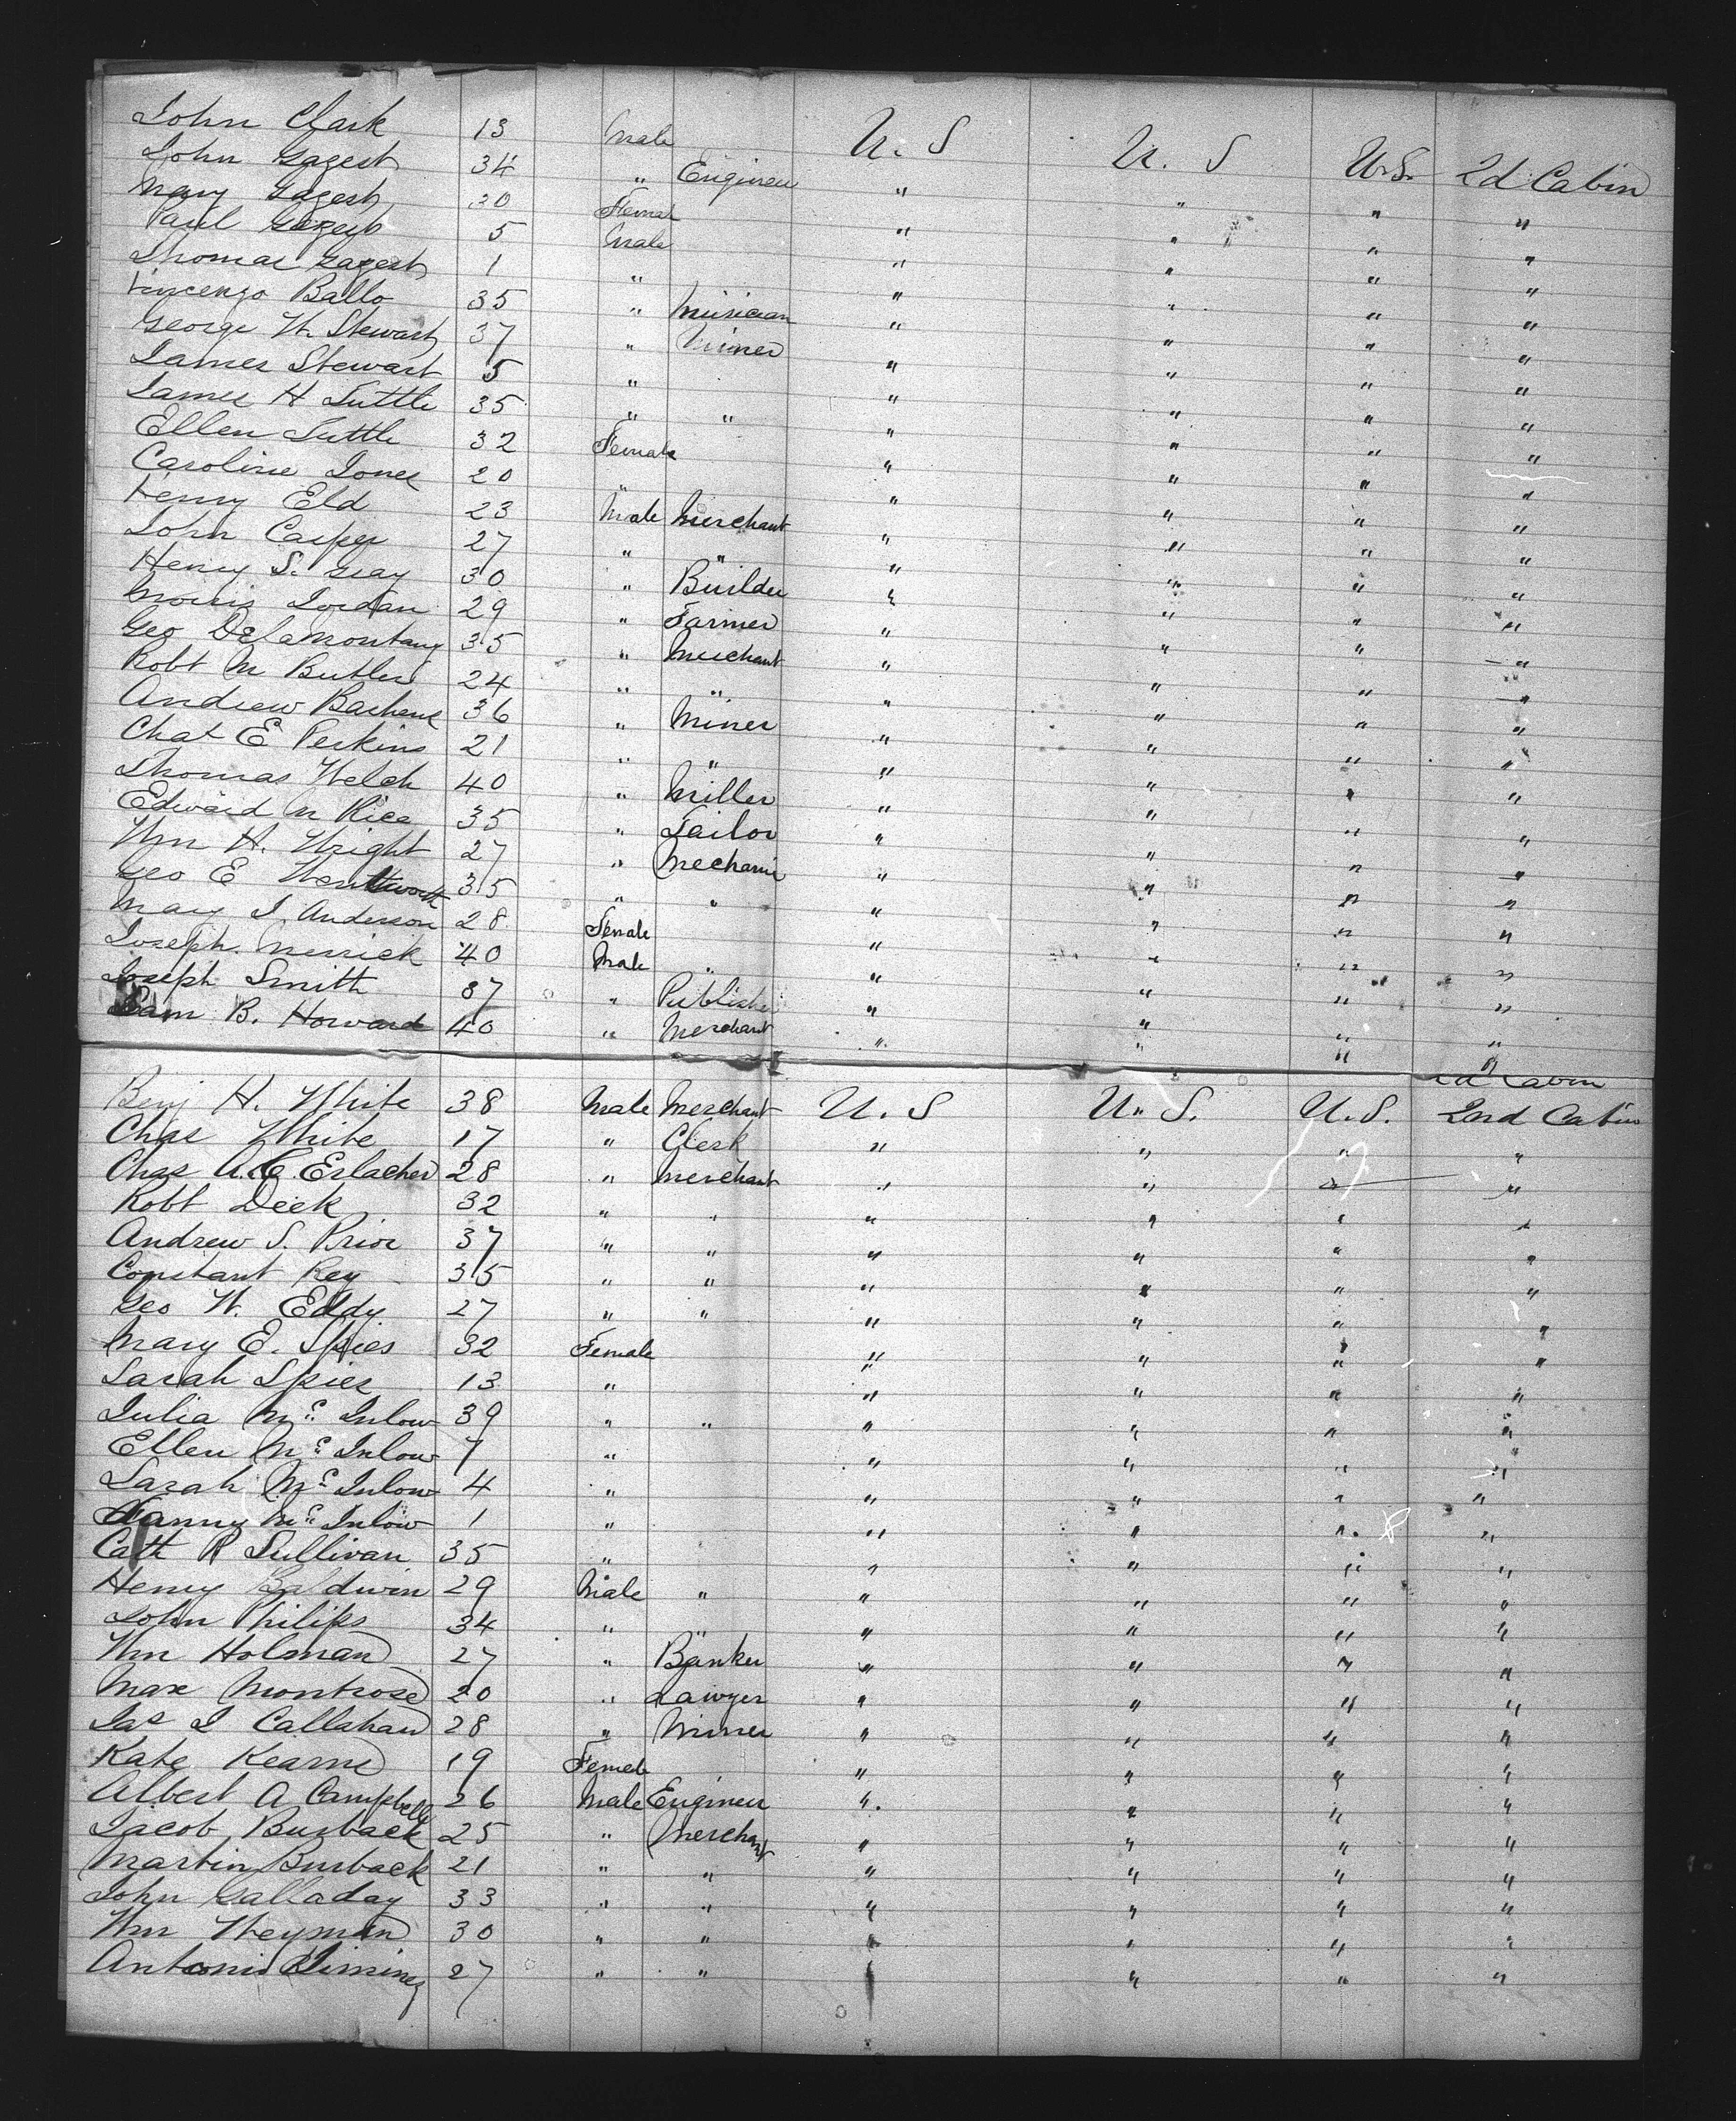 John Clark 13 Male U. S U. S U.S. 2d Cabin
John Gagest 34 " Engineer " " " "
Mary Gagest 30 Female " " " "
Paul Gagest 5 Male " " " "
Thomas Gagest 1 " " " " "
Vincenzo Ballo 35 " Musician " " " "
George W Stewart 37 " Miner " " " "
James Stewart 5 " " " " "
James H Tuttle 35 " " " " " "
Ellen Tuttle 32 Female " " " "
Caroline Jones 20 " " " " "
Henry Eld 23 Male Merchant " " " "
John Casper 27 " " " " " "
Henry S. Gray 30 " Builder " " " "
Morris Jordan 29 " Farmer " " " "
Geo Delamontang 35 " Merchant " " " "
Robt M Butler 24 " " " " " "
Andrew 36 " Miner " " " "
Chas E Perkins 21 " " " " " "
Thomas Welch 40 " Miller " " " "
Edward M Rice 35 " Tailor " " " "
Wm H. Wright 27 " Mechanic " " " "
Geo E Wentworth 35 " " " " " "
Mary J. Anderson 28 Female " " " "
Joseph Merrick 40 Male " " " " "
Joseph Smith 37 " Publisher " " " "
Sam B. Howard 40 " Merchant " " " "
" "
2d Cabin
Benj H. White 38 Male Merchant U. S U. S. U.S. 2nd Cabin
Chas White 17 " Clerk " " " "
Chas A. C. Erlacher 28 " Merchant " " " "
Robt Deek 32 " " " " " "
Andrew S. Prior 37 " " " " " "
Constant Rey 35 " " " " " "
Geo W. Eddy 27 " " " " " "
Mary E. Spies 32 Female " " " "
Sarah Spies 13 " " " " "
Julia Mc Inlow 39 " " " " " "
Ellen Mc Inlow 7 " " " " "
Sarah Mc Inlow 4 " " " " "
Fanny Mc Inlow 1 " " " " "
Cath R Sullivan 35 " " " " "
Henry Baldwin 29 Male " " " " "
John Philips 34 " " " " " "
Wm Holman 27 " Banker " " " "
Max Montrose 20 " Lawyer " " " "
Jas J Callahan 28 " Miner " " " "
Kate Kearne 19 Female " " " "
Albert A Campbell 26 Male Engineer " " " "
Jacob Burback 25 " Merchant " " " "
Martin Burback 21 " " " " " "
John Galladay 33 " " " " " "
Wm Weyman 30 " " " " " "
Antonio Jiminez 27 " " " " " "